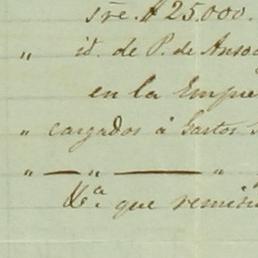 sre. $ 25.000.
" id. de P. de Anso
en la Empre
" cargados á Gastos
" — " — "
que remisi